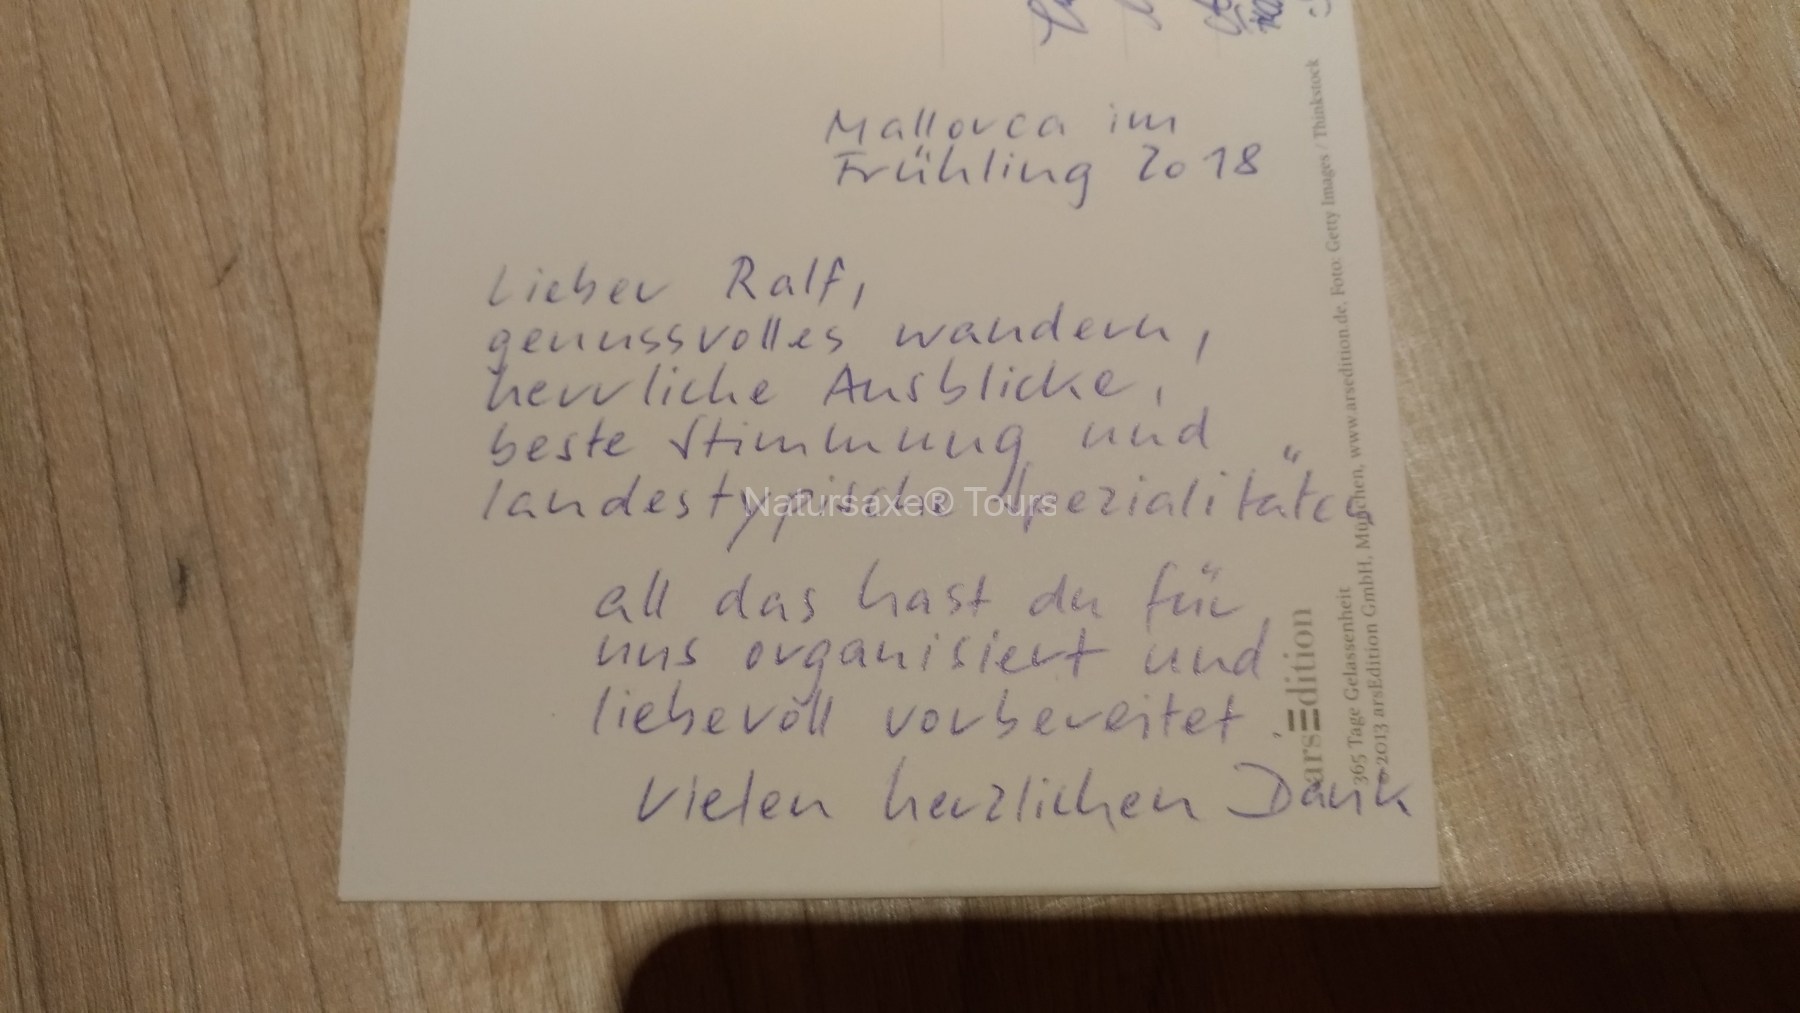 Mallorca im
Frühling 2018
Lieber Ralf,
genussvolles wandern,
herrliche Ausblicke,
beste Stimmung und
landestypische Spezialitäten
all das hast du für
uns organisiert und
liebevoll vorbereitet.
Vielen herzlichen Dank
Natursaxe® Tours
arsEdition
365 Tage Gelassenheit
© 2013 arsEdition GmbH, München, www.arsedition.de, Foto: Getty Images / Thinkstock